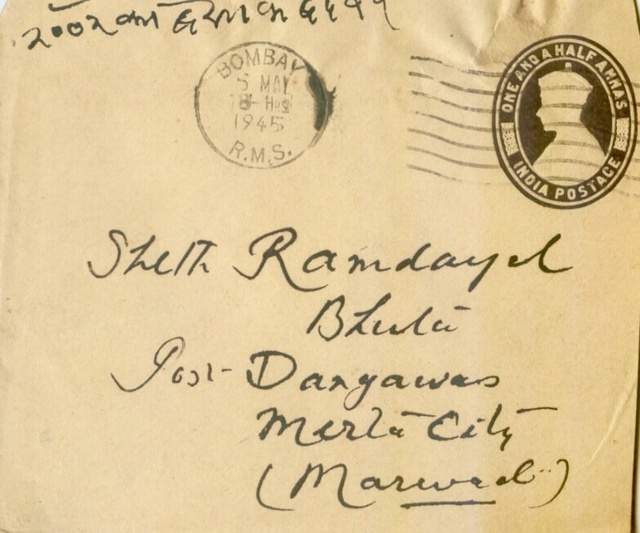 २००२ का
BOMBAY
5 MAY
1945
R.M.S.
ONE AND A HALF ANNAS
INDIA POSTAGE
Sheth Ramdayal
Bhuta
Post- Dangawas
Merta City
(Marwad)